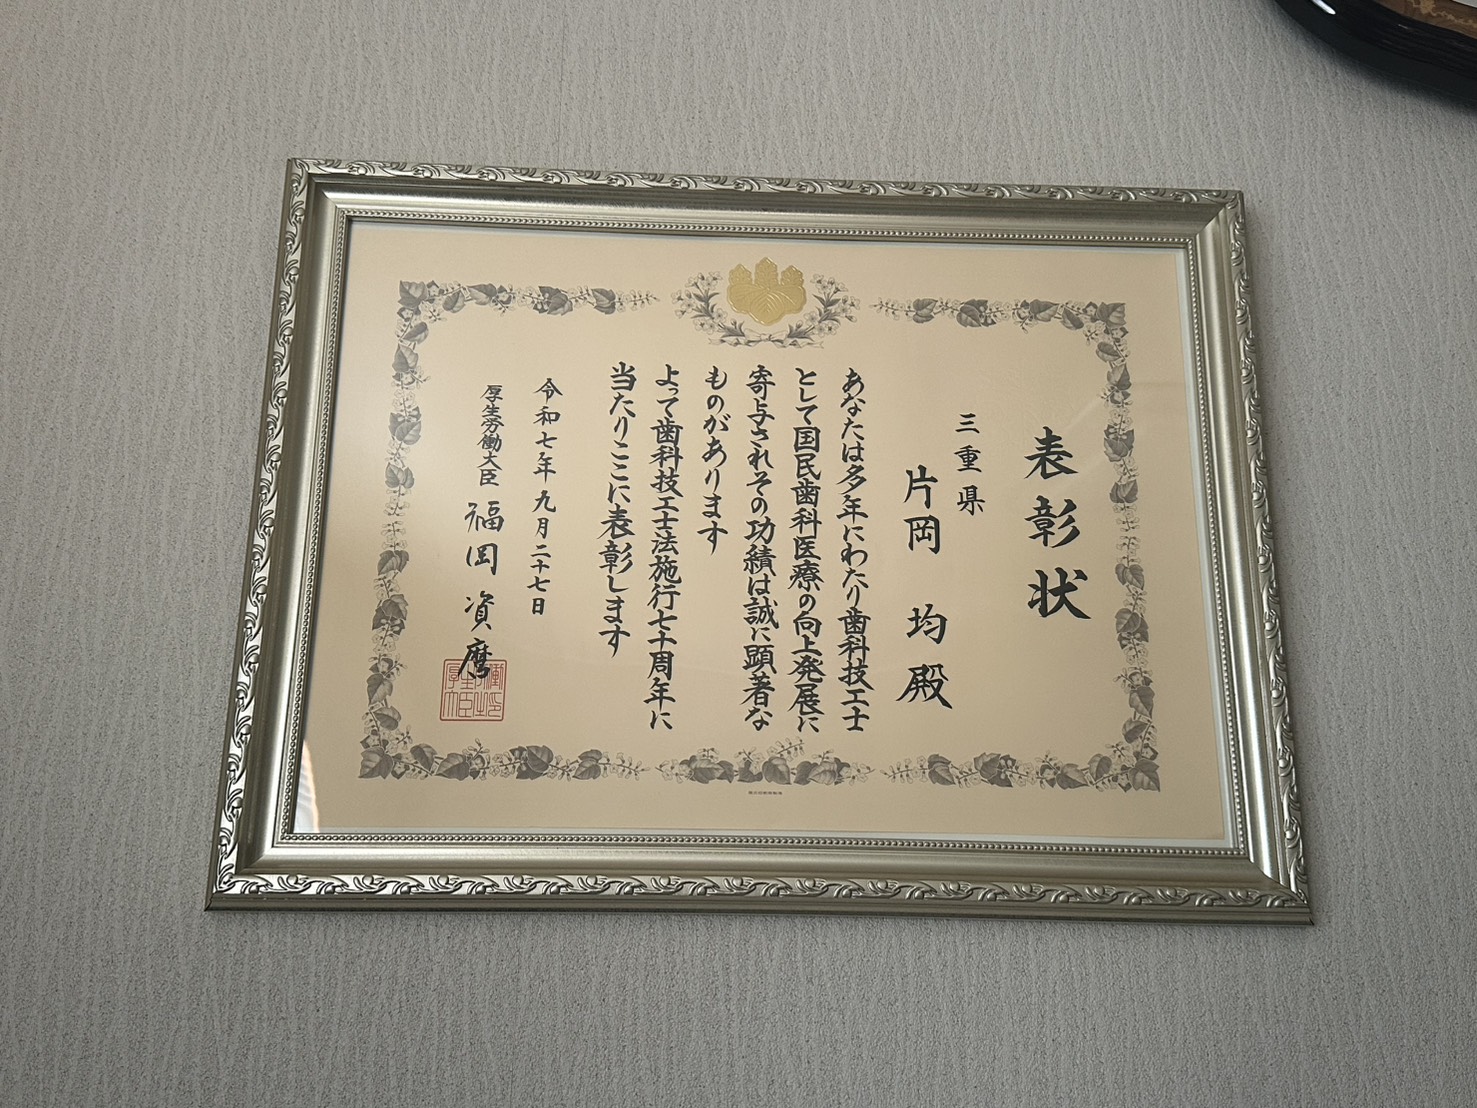 表彰状
三重県
片岡 均 殿
あなたは多年にわたり歯科技工士
として国民歯科医療の向上発展に
寄与されその功績は誠に顕著な
ものがあります
よって歯科技工士法施行七十周年に
当たりここに表彰します
令和七年九月二十七日
厚生労働大臣 福岡資麿